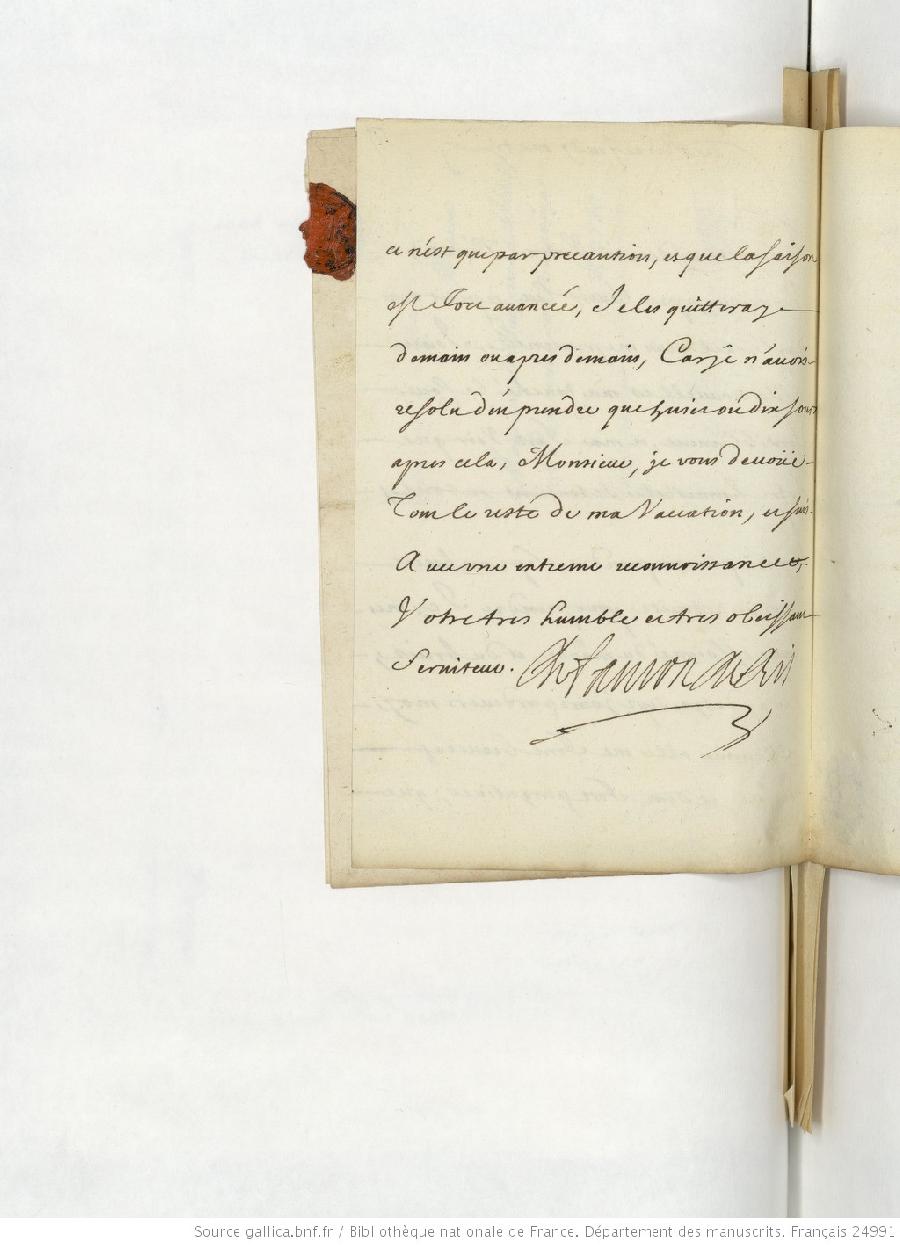 ce n'est que par precaution, et que la saison
est fort avancée, Je les quitteray
demain ou apres demain, Car je n'avois
resolu d'en prendre que huict ou dix jours
apres cela, Monsieur, je vous devoüe
Tout le reste de ma Vaccation, et suis
Avec une extreme reconnoissance,
Votre tres humble et tres obeissant
Serviteur.
Source gallica.bnf.fr / Bibliothèque nationale de France. Département des manuscrits. Français 24991